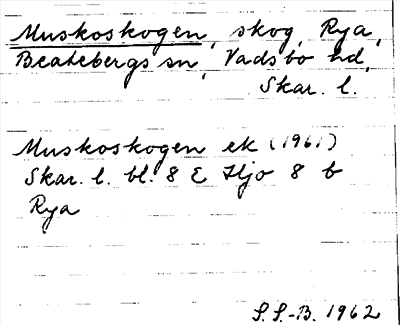 Muskoskogen, skog, Rya,
Beatebergs sn, Vadsbo hd,
Skar. l.
Muskoskogen ek (1961)
Skar. l. bl. 8 E Hjo 8 b
Rya
S. S.-B. 1962